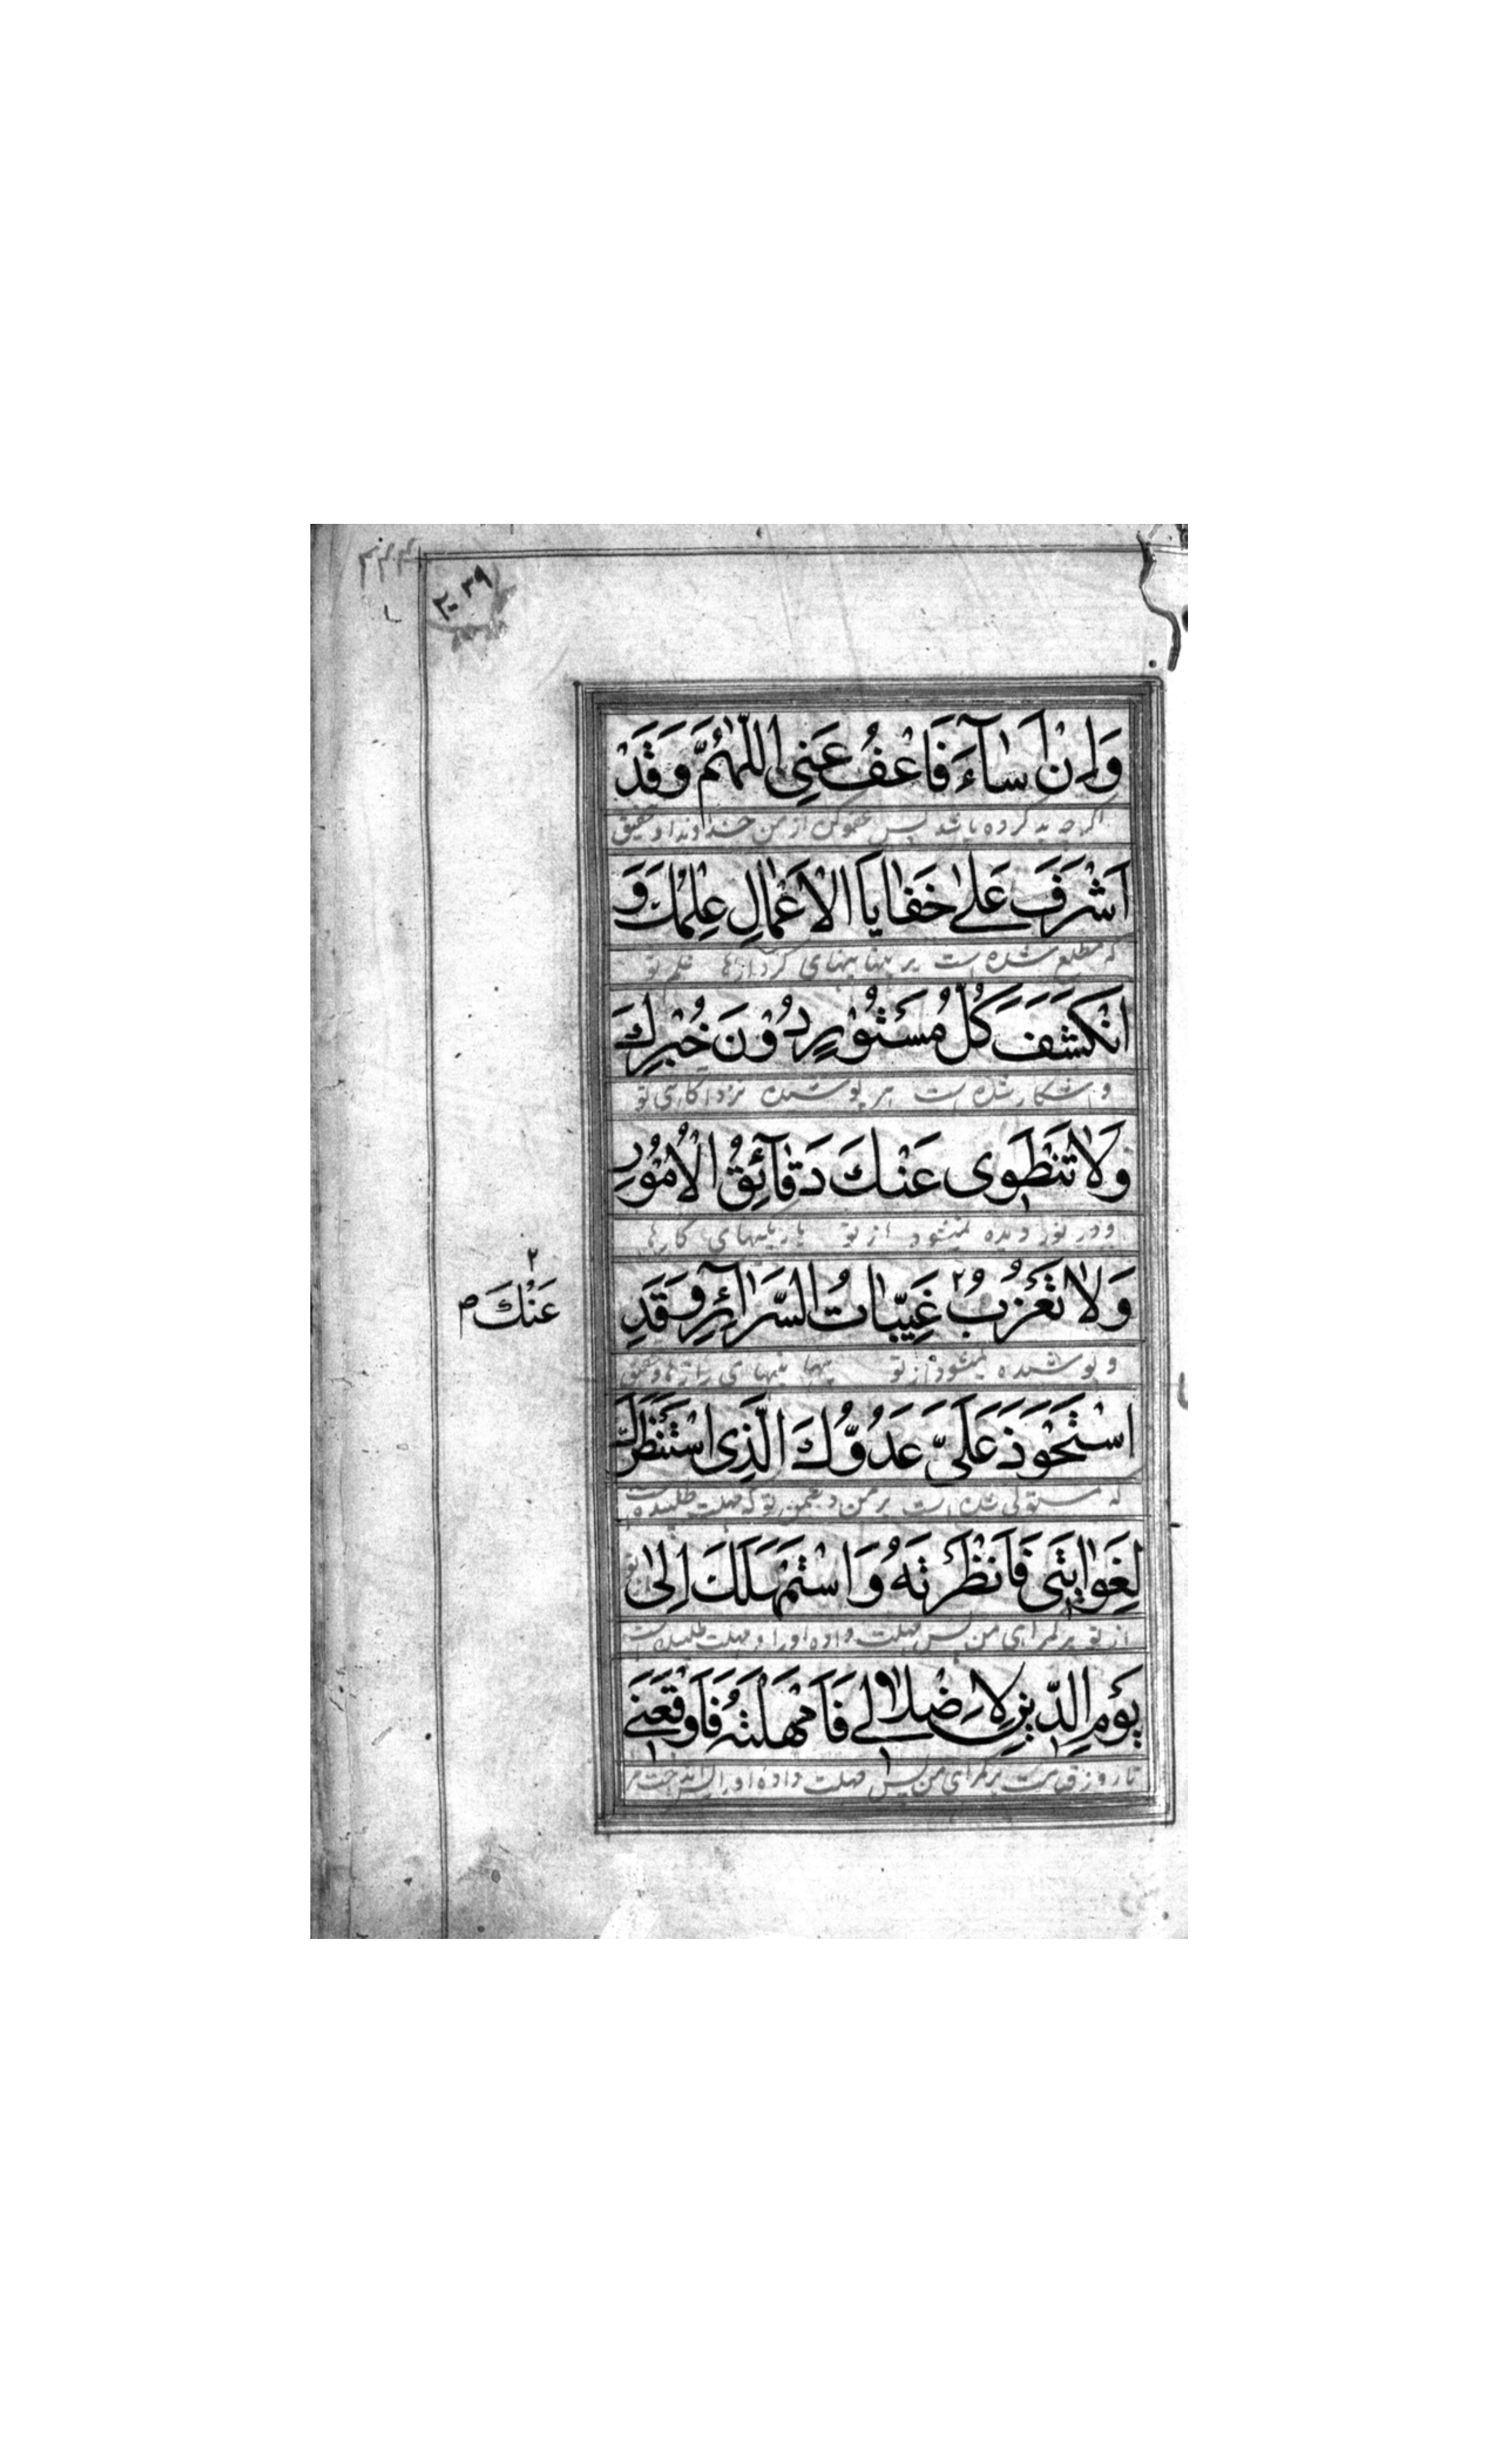 ٢٠٣٩
وَاِنْ اَسٰآءَ فَاعْفُ عَنّىِ اَللّٰهُمَّ وَقَدْ
اگرچه بد کرده باشد پس عفو کن از من خداوندا و تحقیق
اَشْرَفَ عَلىٰ خَفٰايَا الْاَعْمٰالِ عِلْمُكَ وَ
که مطلع شده است بر پنهانیهای کردارها علم تو
انْكَشَفَ كُلُّ مَسْتُوْرٍ دُوْنَ خُبْرِكَ
و اشکار شده است هر پوشیده نزد اکاهی تو
وَلٰا تَنْطَوِى عَنْكَ دَقٰآئِقُ الْاُمُوْرِ
و در نوردیده نمیشود از تو باریکیهای کارها
وَلٰا تَعْزُبُ ٢ غَيِّبٰاتُ السَّرٰآئِرِ وَقَدِ
٢
عَنْكَ ص
و پوشیده نمیشود از تو پنهانیهای رازها و تحقیق
اسْتَحْوَذَ عَلَىَّ عَدُوُّكَ الَّذِى اسْتَنْظَرَكَ
که مستولی شده است بر من دشمن تو که مهلت طلبیده است
لِغَوٰايَتىِ فَاَنْظَرْتَهُ وَاسْتَمْهَلَكَ اِلىٰ
از تو بر گمراهی من پس مهلت داده او را و مهلت طلبیده است
يَوْمِ الدّيِنِ لِاِضْلٰالىِ فَاَمْهَلْتَهُ فَاَوْقَعَنىِ
تا روز قیامت بر گمراهی من پس مهلت داده او را پس انداخت مر